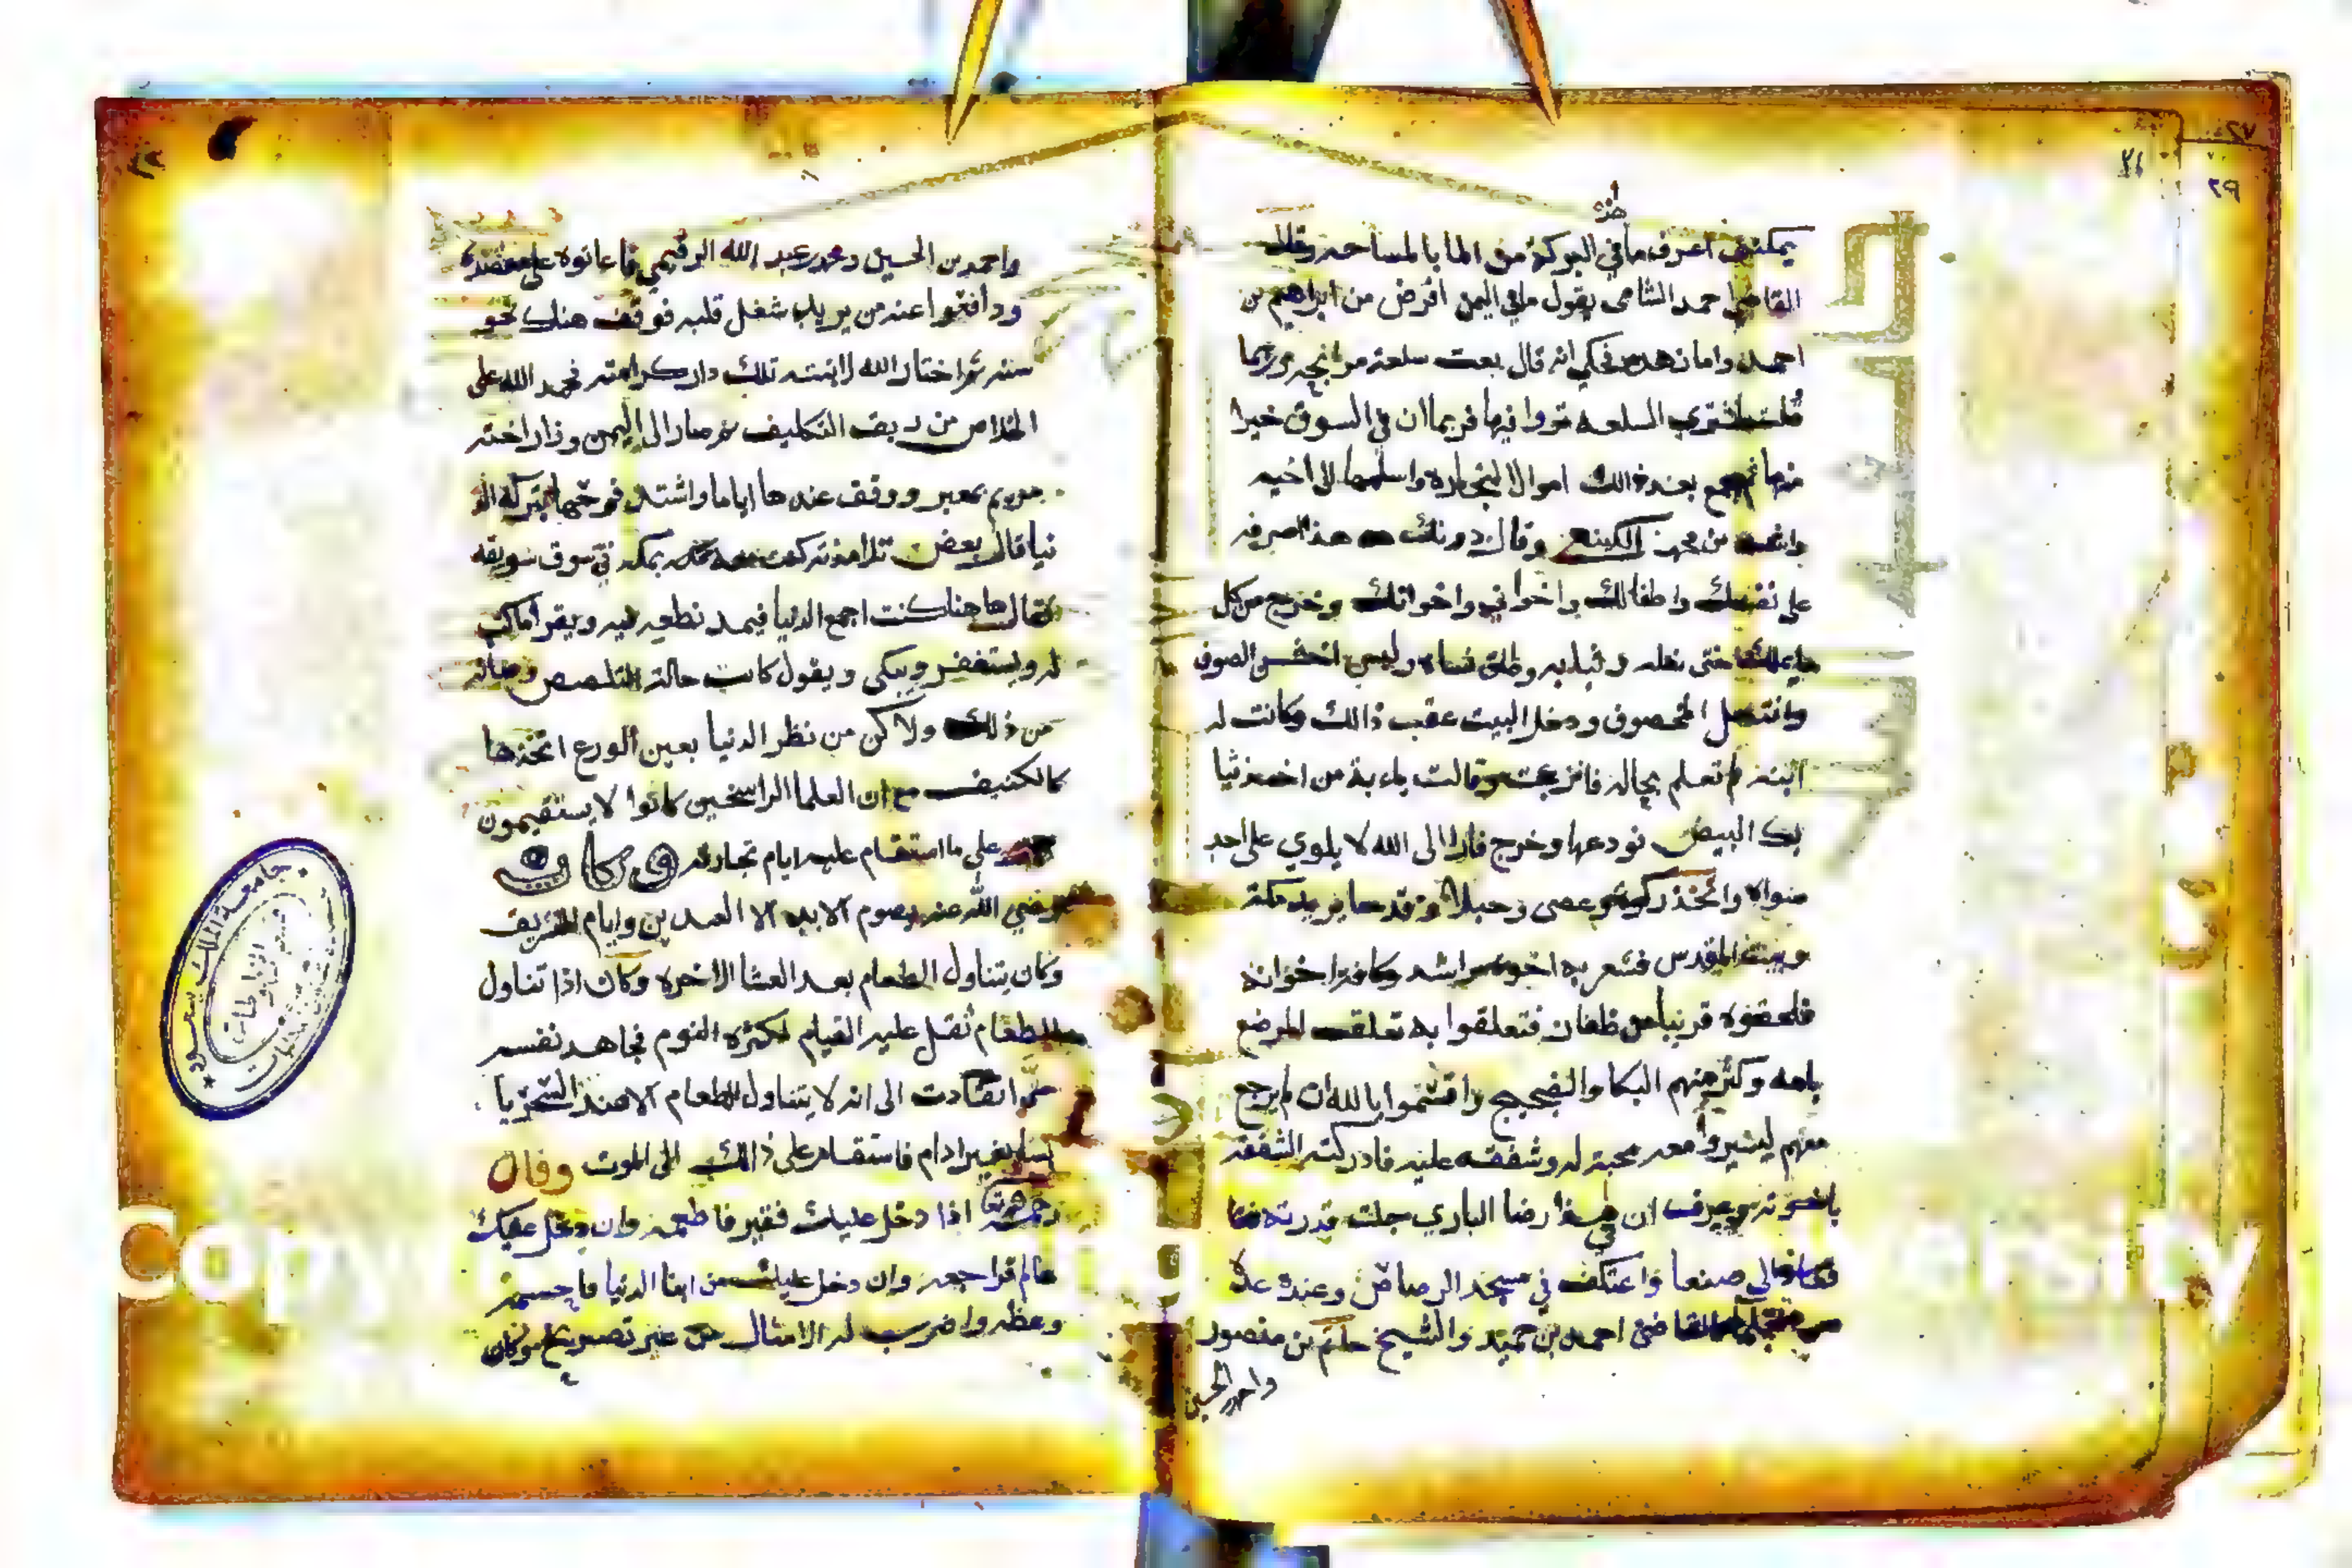 يمكنني اعرف ما في البركة من الما بالمساحه وقال
القاضي احمد الشامي يقول ما في اليمن افرض من ابراهيم بن
احمد واما زهده فحكي انه قال بعت سلعة مرابحه وربما
قلت لمشتري السلعه تروا فيها فربما ان في السوق خيرا
منها ثم جمع بعد ذالك اموال التجاره واسلمها الى اخيه
من جهز الكينعي وقال دونك هذا اصرفه
على نفسك واطفالك واخواني واخوانك وخرج من كل
ما يملك حتى نعله وثيابه وطلق نساه ولبس اخشن الصوف
وانتعل المخصوف ودخل البيت عقب ذالك وكانت له
ابنة لم تعلم بحاله فانزعجت وقالت يا ابة من اخذ ثيا
بك البيض فودعها وخرج فارا الى الله لا يلوي على احد
سواه واتخذ ركوة وعصى وحبلا وقدحا يريد مكة
وبيت المقدس فشعر به اخوه راشد وكافة اخوانه
فلحقوه قريبا من ظفار فتعلقوا به تعلق المرضع
بامه وكثر منهم البكا والضجيج واقسموا بالله ان لم يرجع
معهم ليسيروا معه محبة له وشفقه عليه فادركته الشفقة
باخوته وعرف ان في هذا رضا الباري جلت قدرته
الى صنعا واعتكف في مسجد الرصاص وعنده عدة
القاضي احمد بن حميد والشيخ حاتم بن منصور
واحمد بن الحسين
واحمد بن الحسين ومحمد بن عبد الله الرقيمي فاعانوه على مقصده
ودافعوا عنه من يريد شغل قلبه فوقف هنك نحو
سنه ثم اختار الله لابنته تلك دار كرامته فحمد الله على
الخلاص من ربق التكليف ثم صار الى اليمن وزار اخته
مريم بمعبر ووقف عندها اياما واشتد فرحها بتركه الد
نيا قال بعض تلامذته كنت معه بمكه في سوق سويقه
فقال هاهنا كنت اجمع الدنيا فيمد نطعه فيه ويقرا ماكتب
له ويستغفر ويبكي ويقول كانت حالة التلصص
من ذلك ولاكن من نظر الدنيا بعين الورع اتخذها
كالكنيف مع ان العلما الراسخين كانوا لا يستقيمون
على ما استقام عليه ايام تجارته وكان
رضي الله عنه يصوم الابد الا العيدين وايام التشريف
وكان يتناول الطعام بعد العشا الاخره وكان اذا تناول
الطعام ثقل عليه القيام لكثرة النوم فجاهد نفسه
حتى انقادت الى انه لا يتناول الطعام الا عند السحر يا
بسا بغير ادام فاستقام على ذالك الى الموت وقال
اذا دخل عليك فقير فاطعمه وان دخل عليك
عالم فراجعه وان دخل عليك من ابنا الدنيا
وعظه واضرب له الامثال من غير تصريح وكان
جامعة الملك سعود